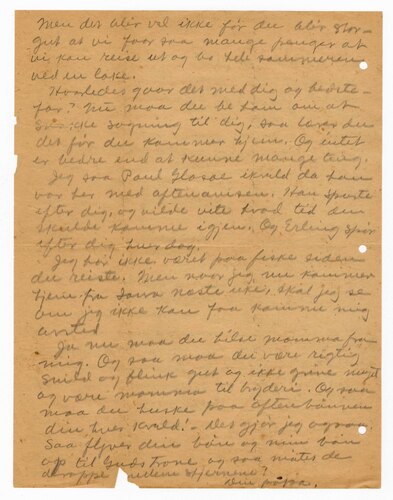 Men det blir vel ikke før du blir stor-
gut at vi faar saa mange penger at
vi kan reise ut og bo hele sommeren
ved en lake.
Hvorledes gaar det med dig og bedste-
far? Nu maa du be ham om at
sogning til dig, saa lærer du
det før du kommer hjem. Og intet
er bedre end at kunne mange ting.
Jeg saa Paul i kveld da han
var her med aftenavisen. Han spurte
efter dig, og vilde vite hvad tid du
skulde komme igjen. Og Erling spør
efter dig hver dag.
Jeg har ikke været paa feske siden
du reiste. Men naar jeg nu kommer
hjem fra Iowa næste uke, skal jeg se
om jeg ikke kan faa komme mig
Ja nu maa du hilse mamma fra
mig. Og saa maa du være rigtig
snild og flink gut og ikke grine noget
og være mamma til bryderi. Og saa
maa du huske paa aftenbønnen
din hver kveld! - Det gjør jeg ogsaa.
Saa flyver din bøn og min bøn
op til Guds trone og saa møtes de
deroppe stjernene?
Din pappa.